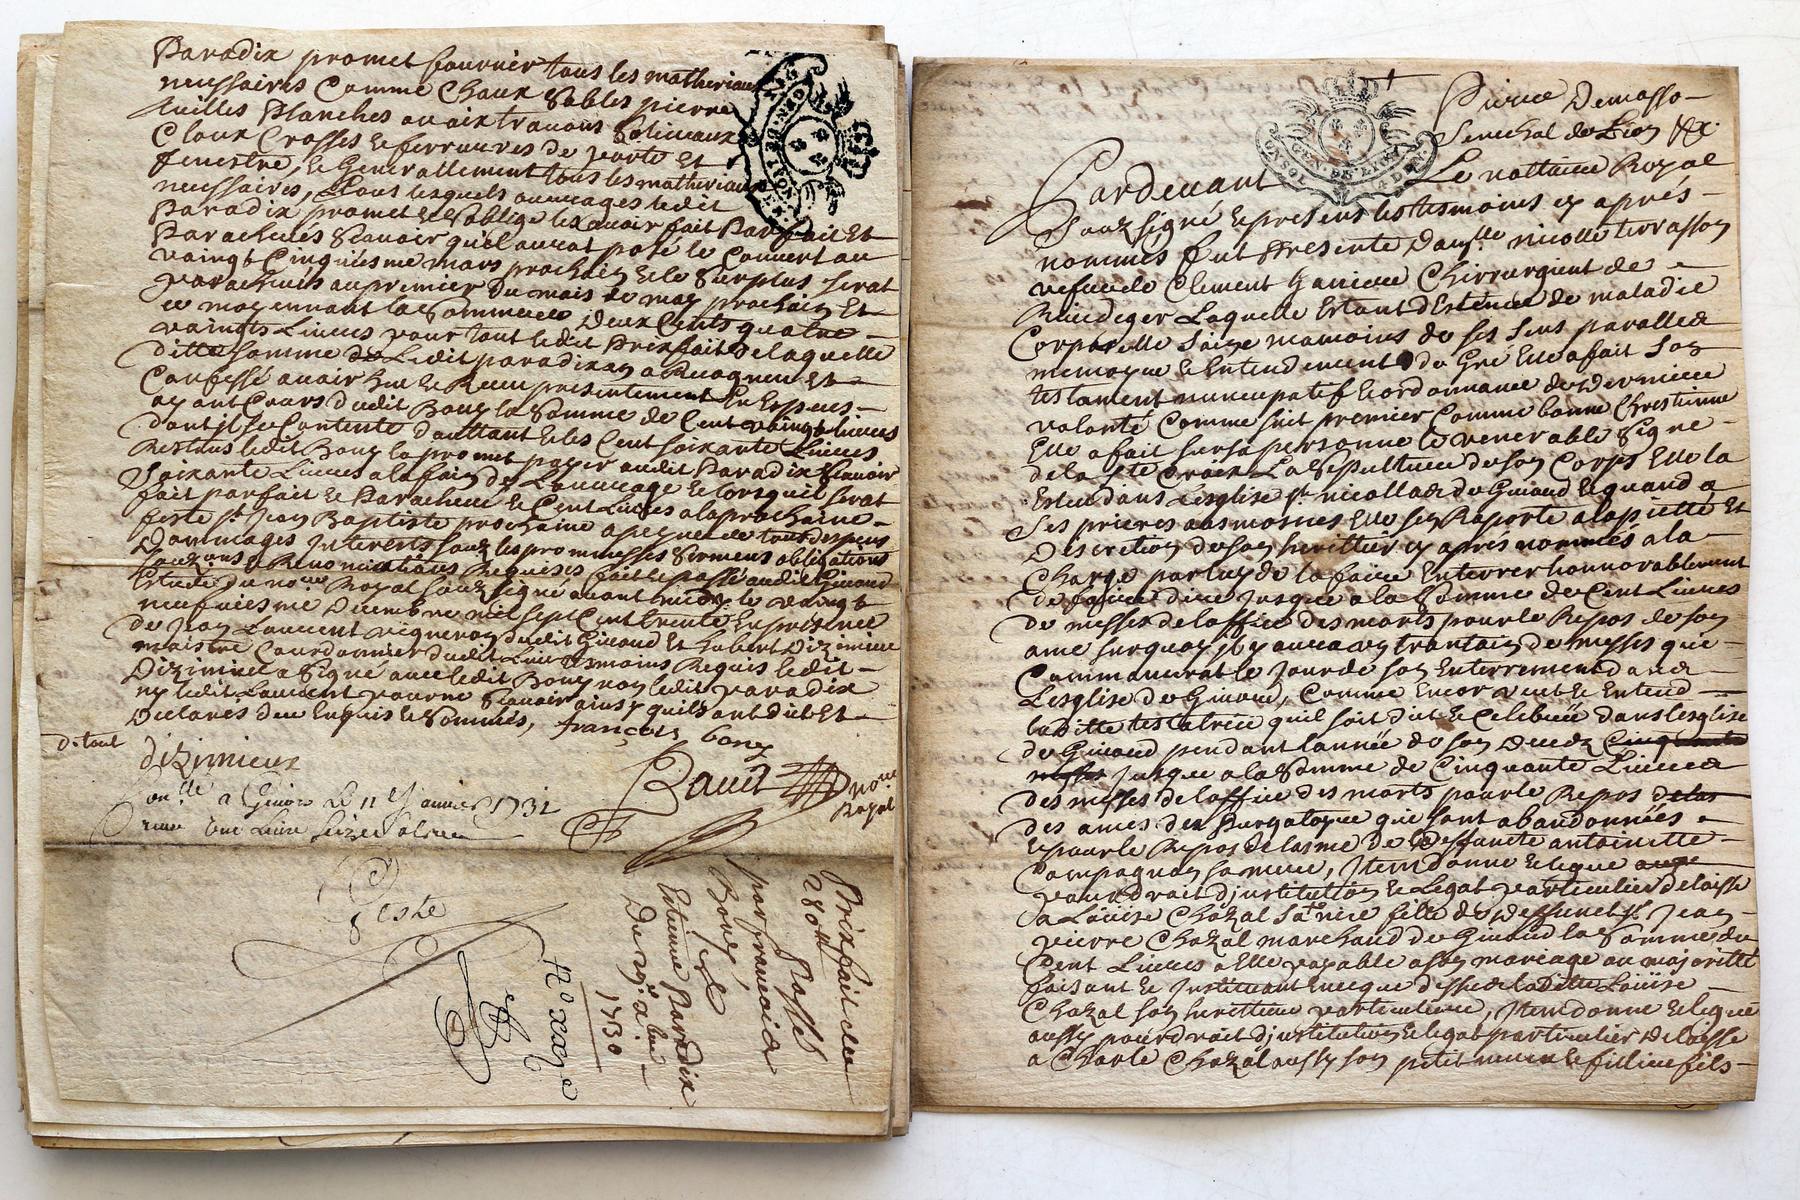 Paradix promet fournir tous les matheriaux
necessaires Comme Chaux Sables pierre
tuilles Planches ou aix travons Soliveaux
Cloux Crosses et ferrures de porte et
fenestre, et Generallement tous les matheriaux
necessaires, tous lesquels ouvrages ledit
Paradix promet et s'oblige les avoir fait Parfait et
Parachevés Scavoir qu'il aurat posé le Couvert au
vaingt Cinquiesme mars prochain et le Surplus serat
parachevés au premier du mois de may prochain Et
ce moyennant la Somme de Deux Cents quatre
vaingts Livres pour tout ledit Prixfait de laquelle
ditte somme ledit paradix a Recogneu Et
Confessé avoir heu et Receu presentement En Especes
ayant Cours dudit Bony la Somme de Cent vaingt livres
dont il se Contente d'auttant et les Cent soixante Livres
Restans ledit Bony la promet payer audit Paradix Scavoir
Soixante Livres a la fain de L'ouvrage et lorsqu'il serat
fait parfait et Paracheué et Cent Livres a la prochaine
feste st Jean Baptiste prochaine a peyne de tous despens
Dommages Interests sous les promesses Sermens obligations
Renonciations Requises fait et passé audit Givord
Estude du nore Royal sousigné avant midy le vaingt
neufviesme Decembre mil sept Cent trente En presence
de Jean Laurent vigneron dudit Givord Et hubert Dizimieu
maistre Courdonnier dudit Lieu tesmoins Requis ledit
Dizimieu a Signé avec ledit Bony non ledit paradix
ny ledit Laurent pour ne Scavoir ainsy qu'ils ont dit Et
Declarés deu Enquis et Sommés, françois bony
dizimieux
Baud nore
Royal
Conllé a Givors Le 11e Janvier 1731
Reçu une Livre seize sols
Prixfait de
280 tt Passé
par francois
Bony,
Estienne Paradix
Du 29e xbre
1730
No xxx
Pierre Demasso
Senechal de Lion &c.
GEN. DE LYON
Pardevant Le nottaire Royal
Souzsigné et presens les tesmoins cy aprés
nommés fut Presente Damlle nicolle terrasson
vefve de Clement Garnier Chirurgient de
Rivedeger Laquelle Estant detenue de maladie
Corporelle Saize neamoins de ses sens parolle
memoyre et Entendement de Gré Elle a fait son
testament nuncupatif et ordonnance de derniere
volonté Comme suit premier Comme bonne Chrestienne
Elle a fait sur sa personne le venerable Signe
de la ste Croix La sepulture de son Corps Elle la
Esleu dans L'esglise st nicollas de Givord et quand a
Ses prieres aumosnes Elle s'en Raporte a la pietté Et
Discretion de son heritier cy aprés nommés a la
Charge par luy de la faire Enterrer honnorablement
de faire dire jusque a la Somme de Cent Livres
de messes de l'office des morts pour le Repos de son
ame sur quoy il y aura un trantain de messes que
Commancerat le jour de son Enterrement dans
L'esglise de Givord, Comme Encor veut et Entend
laditte testatrice qu'il soit dit et Celebréé dans l'esglise
de Givord pendant l'année de son Decedz Cinquante
messes jusque a la Somme de Cinquante Livres
des messes de l'office des morts pour le Repos
des ames du Purgatoyre que sont abandonnéés
et pour le Repos de l'asme de deffuncte antoinette
Compagnon sa mere, Item donne et legue
pour droit d'institution et Legat particulier delaisse
a Louise Chazal sa niece fille de deffunct sr Jean
pierre Chazal marchand de Givord la Somme de
Cent Livres a Elle payable a son mareage ou majoritté
faisant et Instituant laditte Louise
Chazal son heritiere particuliere, Item donne et legue
aussy pour droit d'institution et legat particulier Delaisse
a Charle Chazal aussy son petit neveu et filleu fils